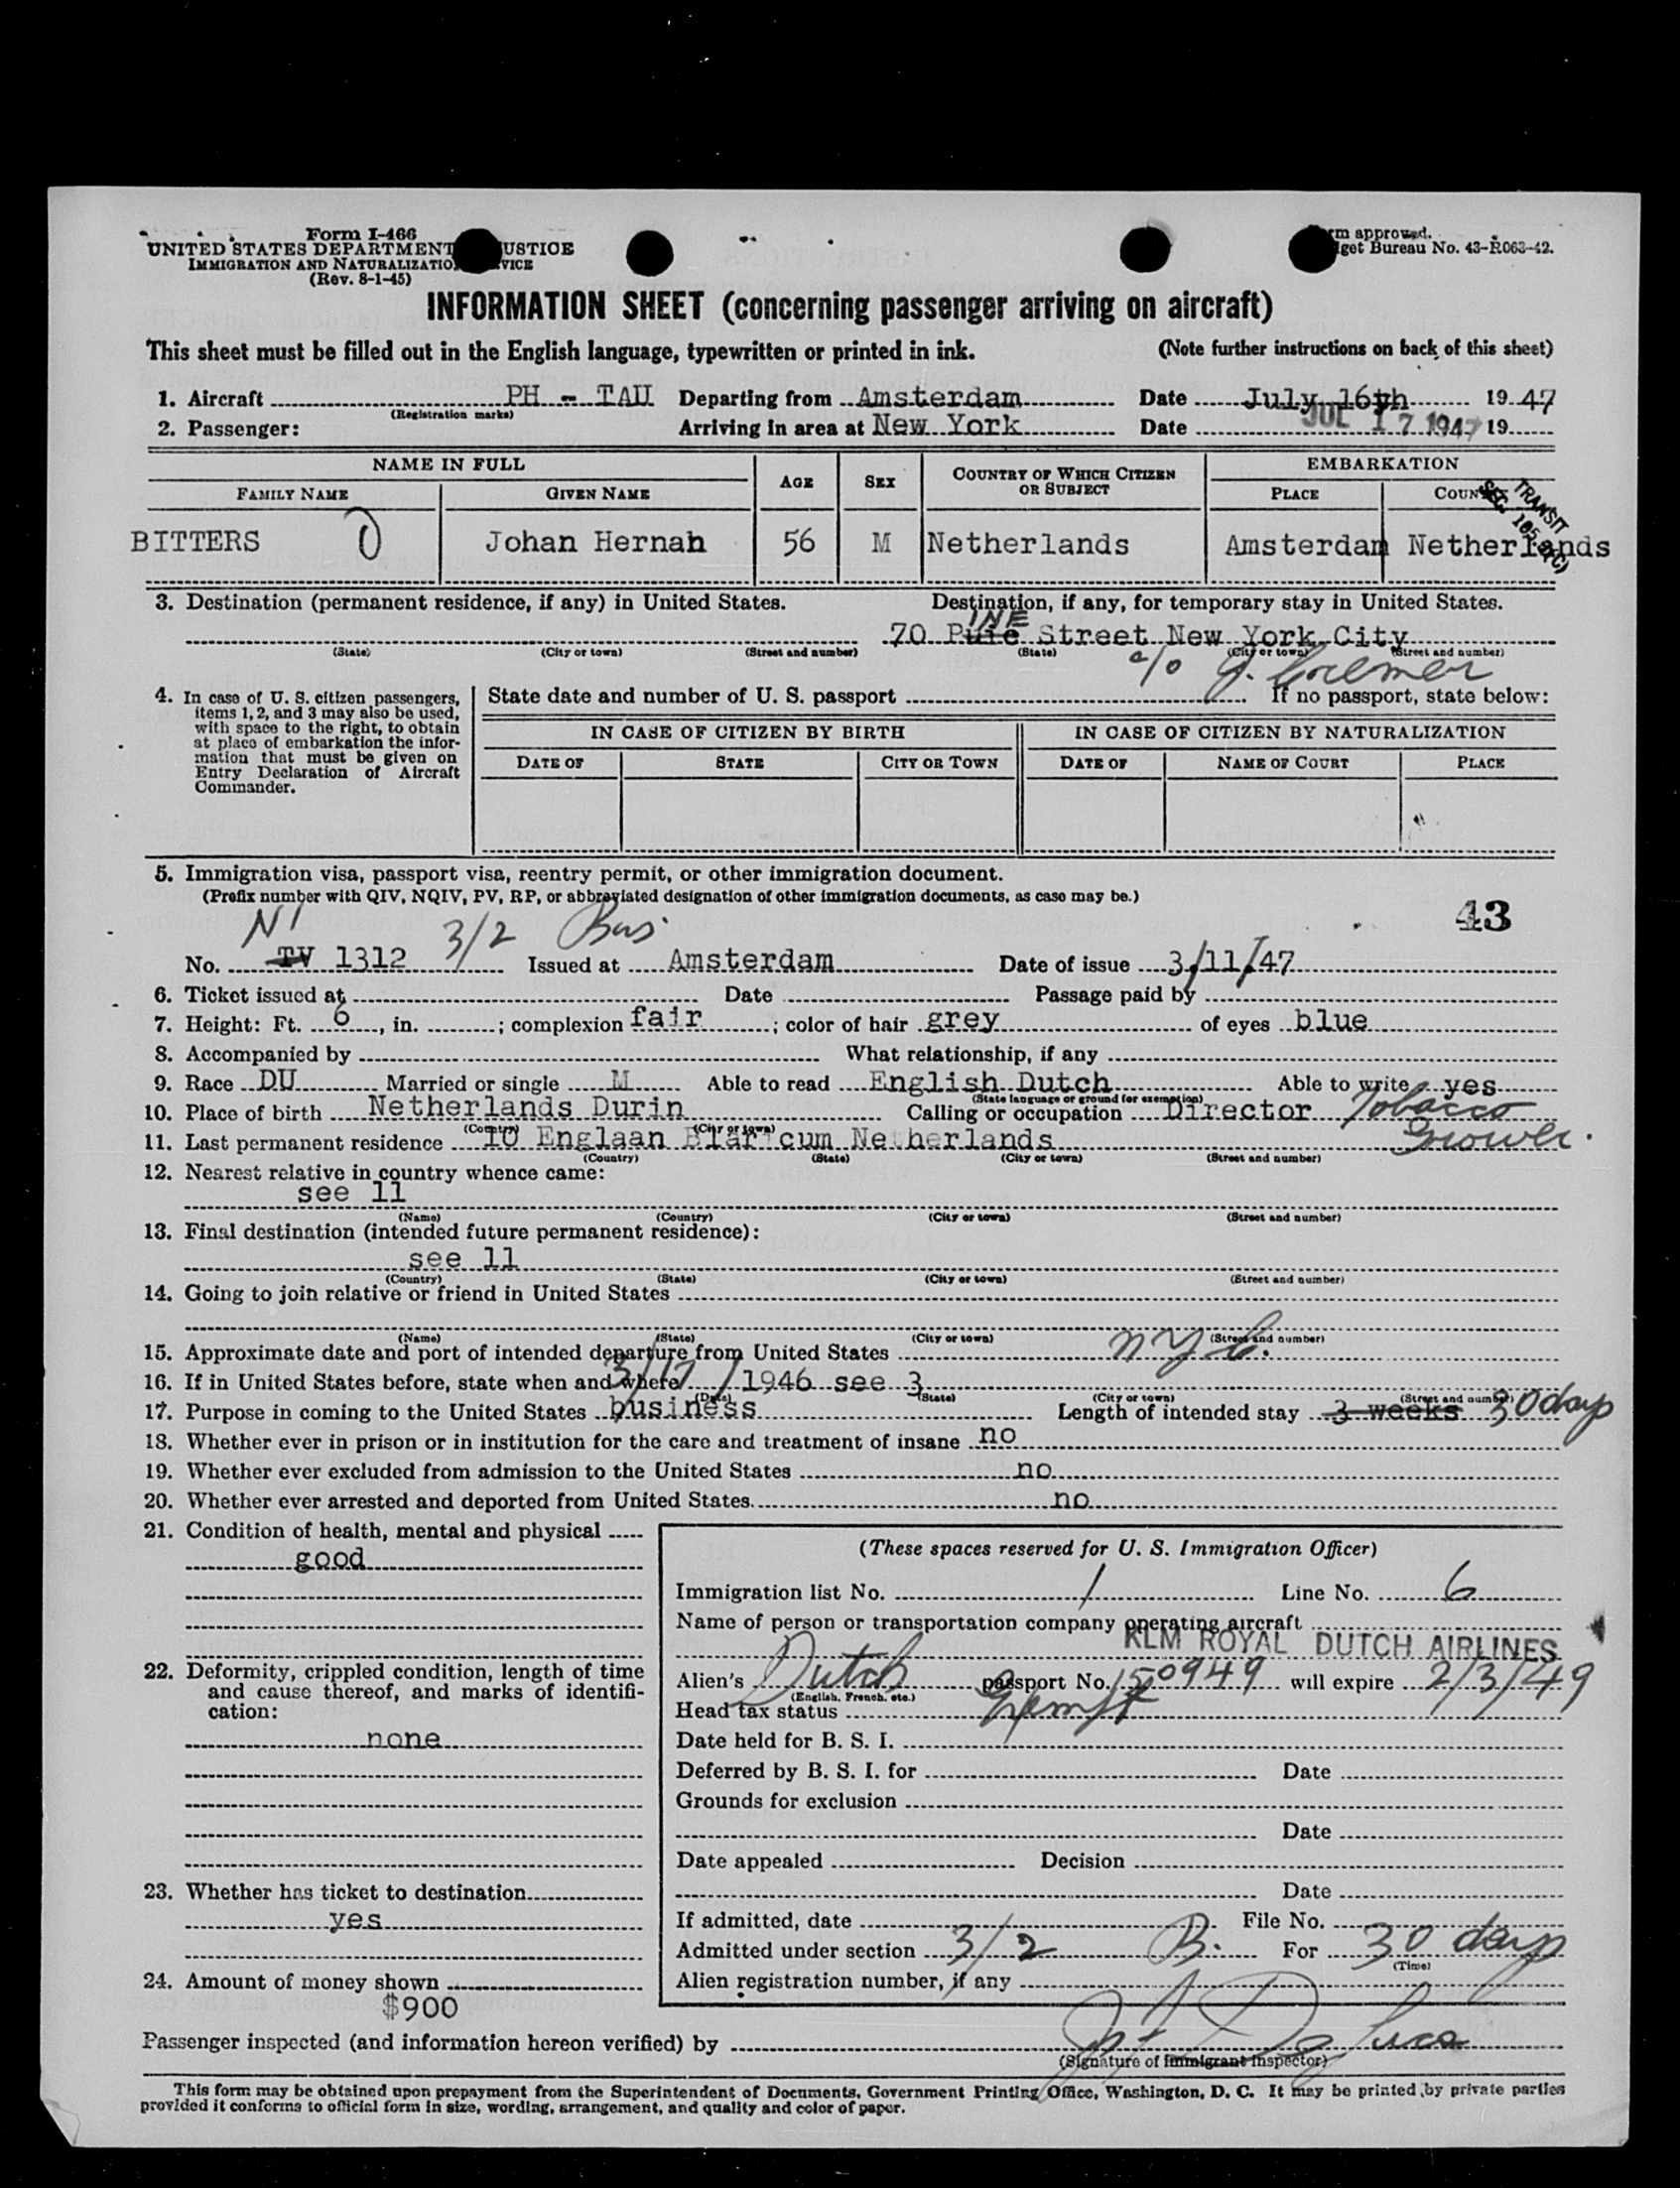 Form I-466
UNITED STATES DEPARTMENT USTICE
IMMIGRATION AND NATURALIZATIO VICE
(Rev. 8-1-45)
rm approved.
get Bureau No. 43-R063-42.
INFORMATION SHEET (concerning passenger arriving on aircraft)
This sheet must be filled out in the English language, typewritten or printed in ink. (Note further instructions on back of this sheet)
1. Aircraft PH - TAU Departing from Amsterdam Date July 16th 19 47
(Registration marks)
2. Passenger: Arriving in area at New York Date JUL 17 1947 19
NAME IN FULL AGE SEX COUNTRY OF WHICH CITIZEN OR SUBJECT EMBARKATION
FAMILY NAME GIVEN NAME PLACE COUN
TRANSIT
BITTERS Johan Hernan 56 M Netherlands Amsterdam Netherlands
3. Destination (permanent residence, if any) in United States. Destination, if any, for temporary stay in United States.
INE
70 Street New York City
(State) (City or town) (Street and number) (State) (City or town) (Street and number)
c/o J. Cremer
4. In case of U. S. citizen passengers, items 1, 2, and 3 may also be used, with space to the right, to obtain at place of embarkation the information that must be given on Entry Declaration of Aircraft Commander.
State date and number of U. S. passport If no passport, state below:
IN CASE OF CITIZEN BY BIRTH IN CASE OF CITIZEN BY NATURALIZATION
DATE OF STATE CITY OR TOWN DATE OF NAME OF COURT PLACE
5. Immigration visa, passport visa, reentry permit, or other immigration document.
(Prefix number with QIV, NQIV, PV, RP, or abbreviated designation of other immigration documents, as case may be.)
43
NI 3/2 Bus
No. TV 1312 Issued at Amsterdam Date of issue 3/11/47
6. Ticket issued at Date Passage paid by
7. Height: Ft. 6, in. ; complexion fair ; color of hair grey of eyes blue
8. Accompanied by What relationship, if any
9. Race DU Married or single M Able to read English Dutch Able to write yes
(State language or ground for exemption)
10. Place of birth Netherlands Durin Calling or occupation Director Tobacco
(Country) (City or town)
11. Last permanent residence 10 Englaan Blaricum Netherlands Grower.
(Country) (State) (City or town) (Street and number)
12. Nearest relative in country whence came:
see 11
(Name) (Country) (City or town) (Street and number)
13. Final destination (intended future permanent residence):
see 11
(Country) (State) (City or town) (Street and number)
14. Going to join relative or friend in United States
(Name) (State) (City or town) (Street and number)
15. Approximate date and port of intended departure from United States NYC.
16. If in United States before, state when and where 3/17/1946 see 3
(Date) (State) (City or town) (Street and number)
17. Purpose in coming to the United States business Length of intended stay 3 weeks 30 days
18. Whether ever in prison or in institution for the care and treatment of insane no
19. Whether ever excluded from admission to the United States no
20. Whether ever arrested and deported from United States. no
21. Condition of health, mental and physical
good
22. Deformity, crippled condition, length of time and cause thereof, and marks of identification:
none
23. Whether has ticket to destination
yes
24. Amount of money shown
$900
(These spaces reserved for U. S. Immigration Officer)
Immigration list No. 1 Line No. 6
Name of person or transportation company operating aircraft
KLM ROYAL DUTCH AIRLINES
Alien's Dutch passport No. 150949 will expire 2/3/49
(English, French, etc.)
Head tax status Exempt
Date held for B. S. I.
Deferred by B. S. I. for Date
Grounds for exclusion
Date
Date appealed Decision
Date
If admitted, date File No.
Admitted under section 3/2 B. For 30 days
(Time)
Alien registration number, if any
Passenger inspected (and information hereon verified) by
(Signature of Immigrant Inspector)
This form may be obtained upon prepayment from the Superintendent of Documents, Government Printing Office, Washington, D. C. It may be printed by private parties
provided it conforms to official form in size, wording, arrangement, and quality and color of paper.